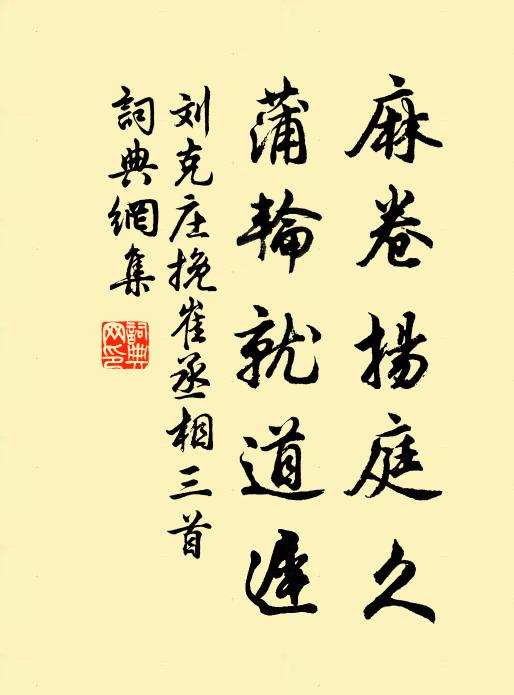 麻卷揚庭久
蒲輪就道遲
刘克庄挽崔丞相三首
詞典網集
詞典網印